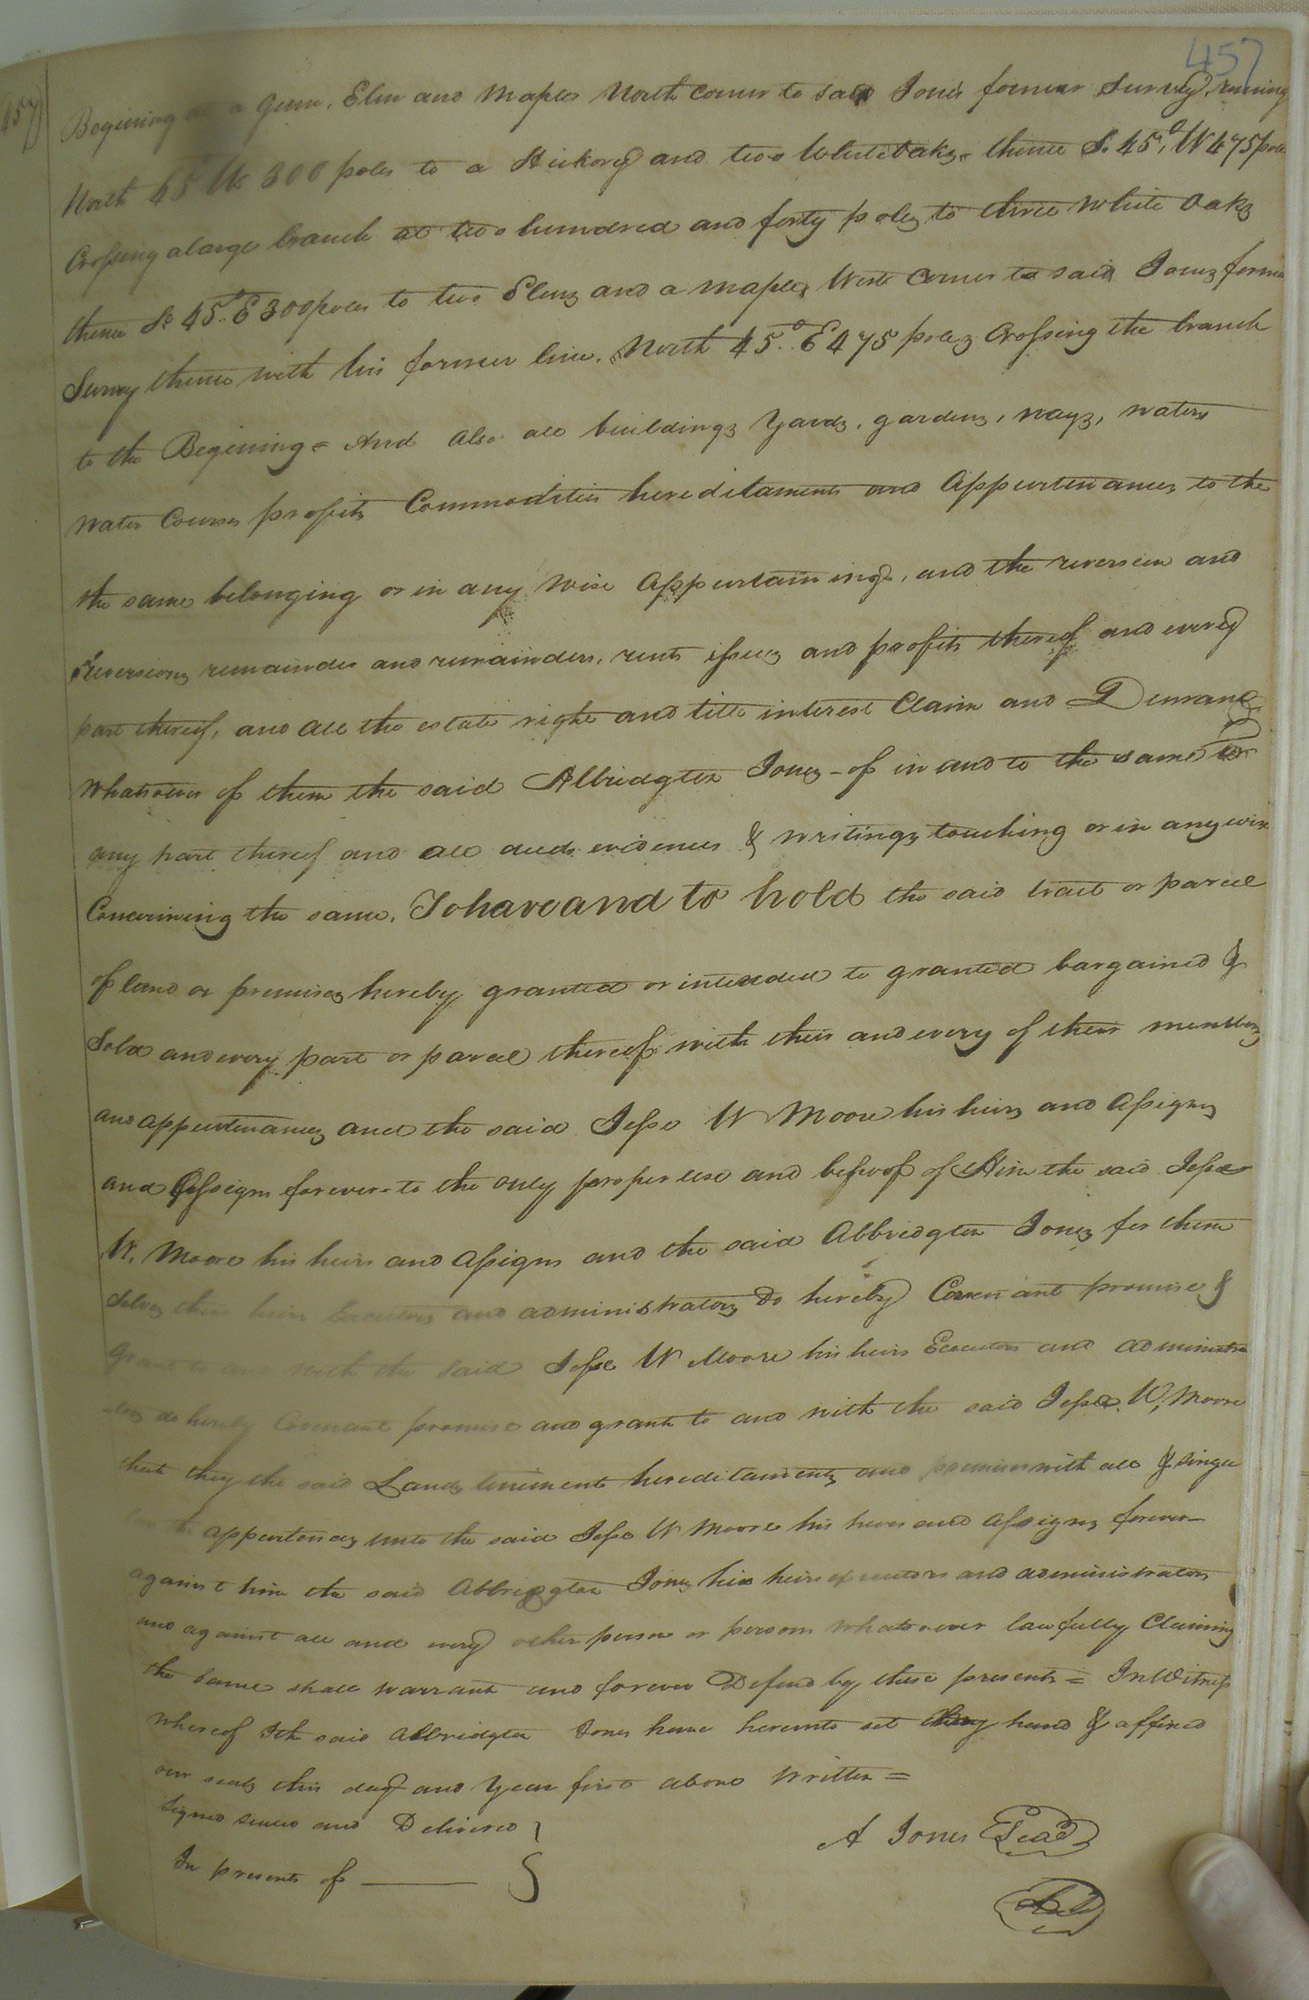 457
457
Begining at a Gum, Elm and Maples North corner to said Jones former Survey, running
North 45° W 300 poles to a Hickory and two White Oaks, thence S. 45° W 475 poles
Crossing a large branch at two hundred and forty poles to three White Oaks
thence So 45° E 300 poles to two Elms and a maple, West Corner to said Jones former
Survey thence with his former line, North 45° E 475 poles Crossing the branch
to the Begining = And also all buildings yards, gardens, ways, waters
water Courses profits Commodities hereditaments and Appurtenances to the
the same belonging or in any wise Appertaining, and the reversion and
reversions remainder and remainders, rents issues and profits thereof and every
part thereof, and all the estate right and title interest Claim and Demand
whatsoever of them the said Albridgton Jones - of in and to the same or
any part thereof and all deeds evidences & writings touching or in any wise
Concerning the same, To have and to hold the said tract or parcel
of land or premises hereby granted or intended to granted bargained &
Sold and every part or parcel thereof with their and every of their members
and appurtenances and the said Jesse W Moore his heirs and Assigns
and Assigns forever to the only proper use and behoof of Him the said Jesse
W. Moore his heirs and Assigns and the said Abbridgton Jones for them
Selves their heirs Executors and administrators Do hereby Covenant promise &
Grant to and with the said Jesse W Moore his heirs Executors and administra
tors do hereby Covenant promise and grant to and with the said Jesse W, Moore
that they the said Lands teniment hereditaments and premises with all & singu
lar the appurtences unto the said Jesse W Moore his heirs and assigns forever
against him the said Abbridgton Jones his heirs executors and administrators
and against all and every other person or persons whatsoever lawfully Claiming
the same shall warrant and forever Defend by these presents = In Witness
whereof I th said Albridgton Jones have hereunto set hand & affixed
our seals this day and year first above written =
Signed Sealed and Delivered
A Jones Seal
In presents of